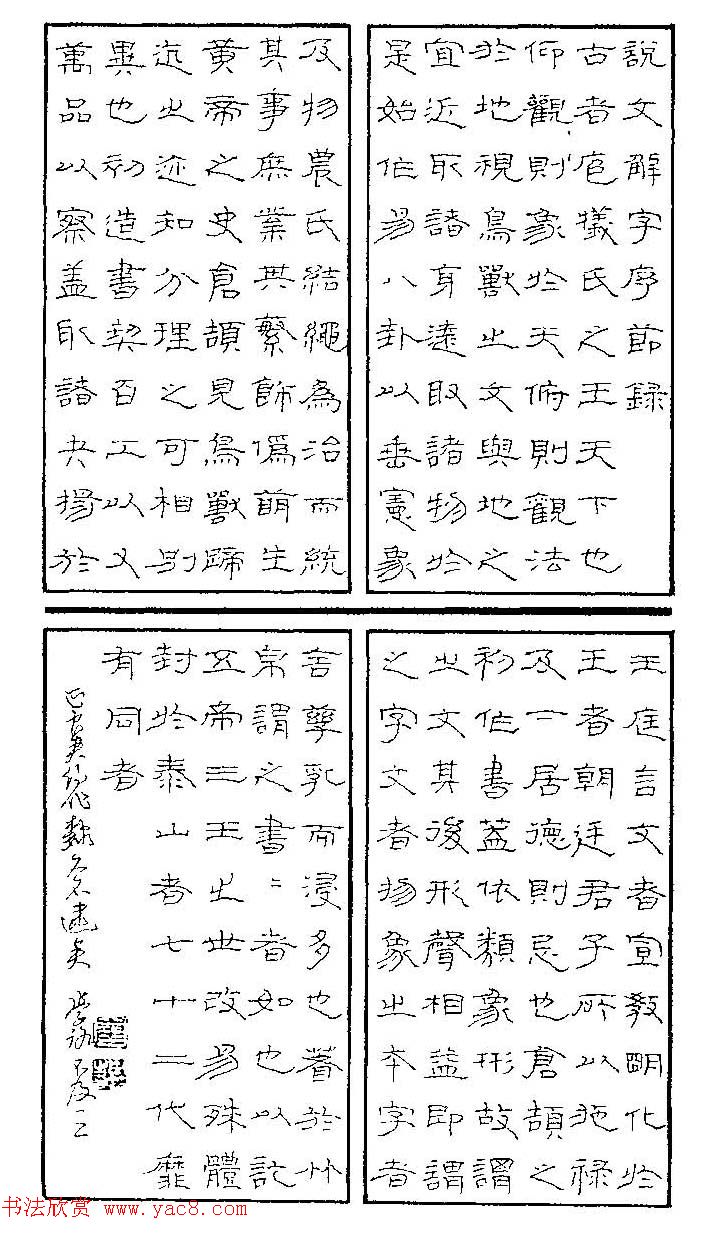 說文解字序節錄
古者庖犧氏之王天下也
仰觀則象於天俯則觀法
於地視鳥獸之文與地之
宜近取諸身遠取諸物於
是始作易八卦以垂憲象
及物農氏結繩為治而統
其事庶業其繁飾偽萌生
黄帝之史倉頡見鳥獸蹄
迒之迹知分理之可相別
異也初造書契百工以乂
萬品以察盖取諸夬揚於
王庭言文者宣教明化於
王者朝廷君子所以施祿
及下居德則忌也倉頡之
初作書蓋依類象形故謂
之文其後形聲相益即謂
之字文者物象之本字者
言孳乳而浸多也著於竹
帛謂之書〻者如也以記
五帝三王之世改易殊體
封於泰山者七十二代靡
有同者
书法欣赏 www.yac8.com